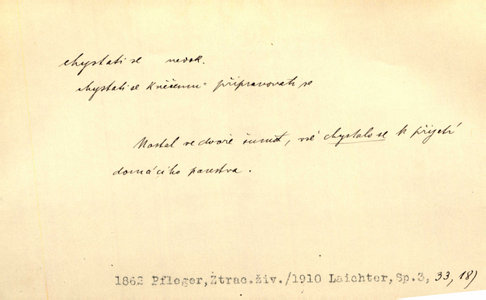 chystati se nedok.
chystati se k něčemu - připravovati se
Nastal ve dvoře šumot, vše chystalo se k přijetí
domácího panstva.
1862 Pfleger, Ztrac.živ./1910 Laichter, Sp.3, 33, 18)